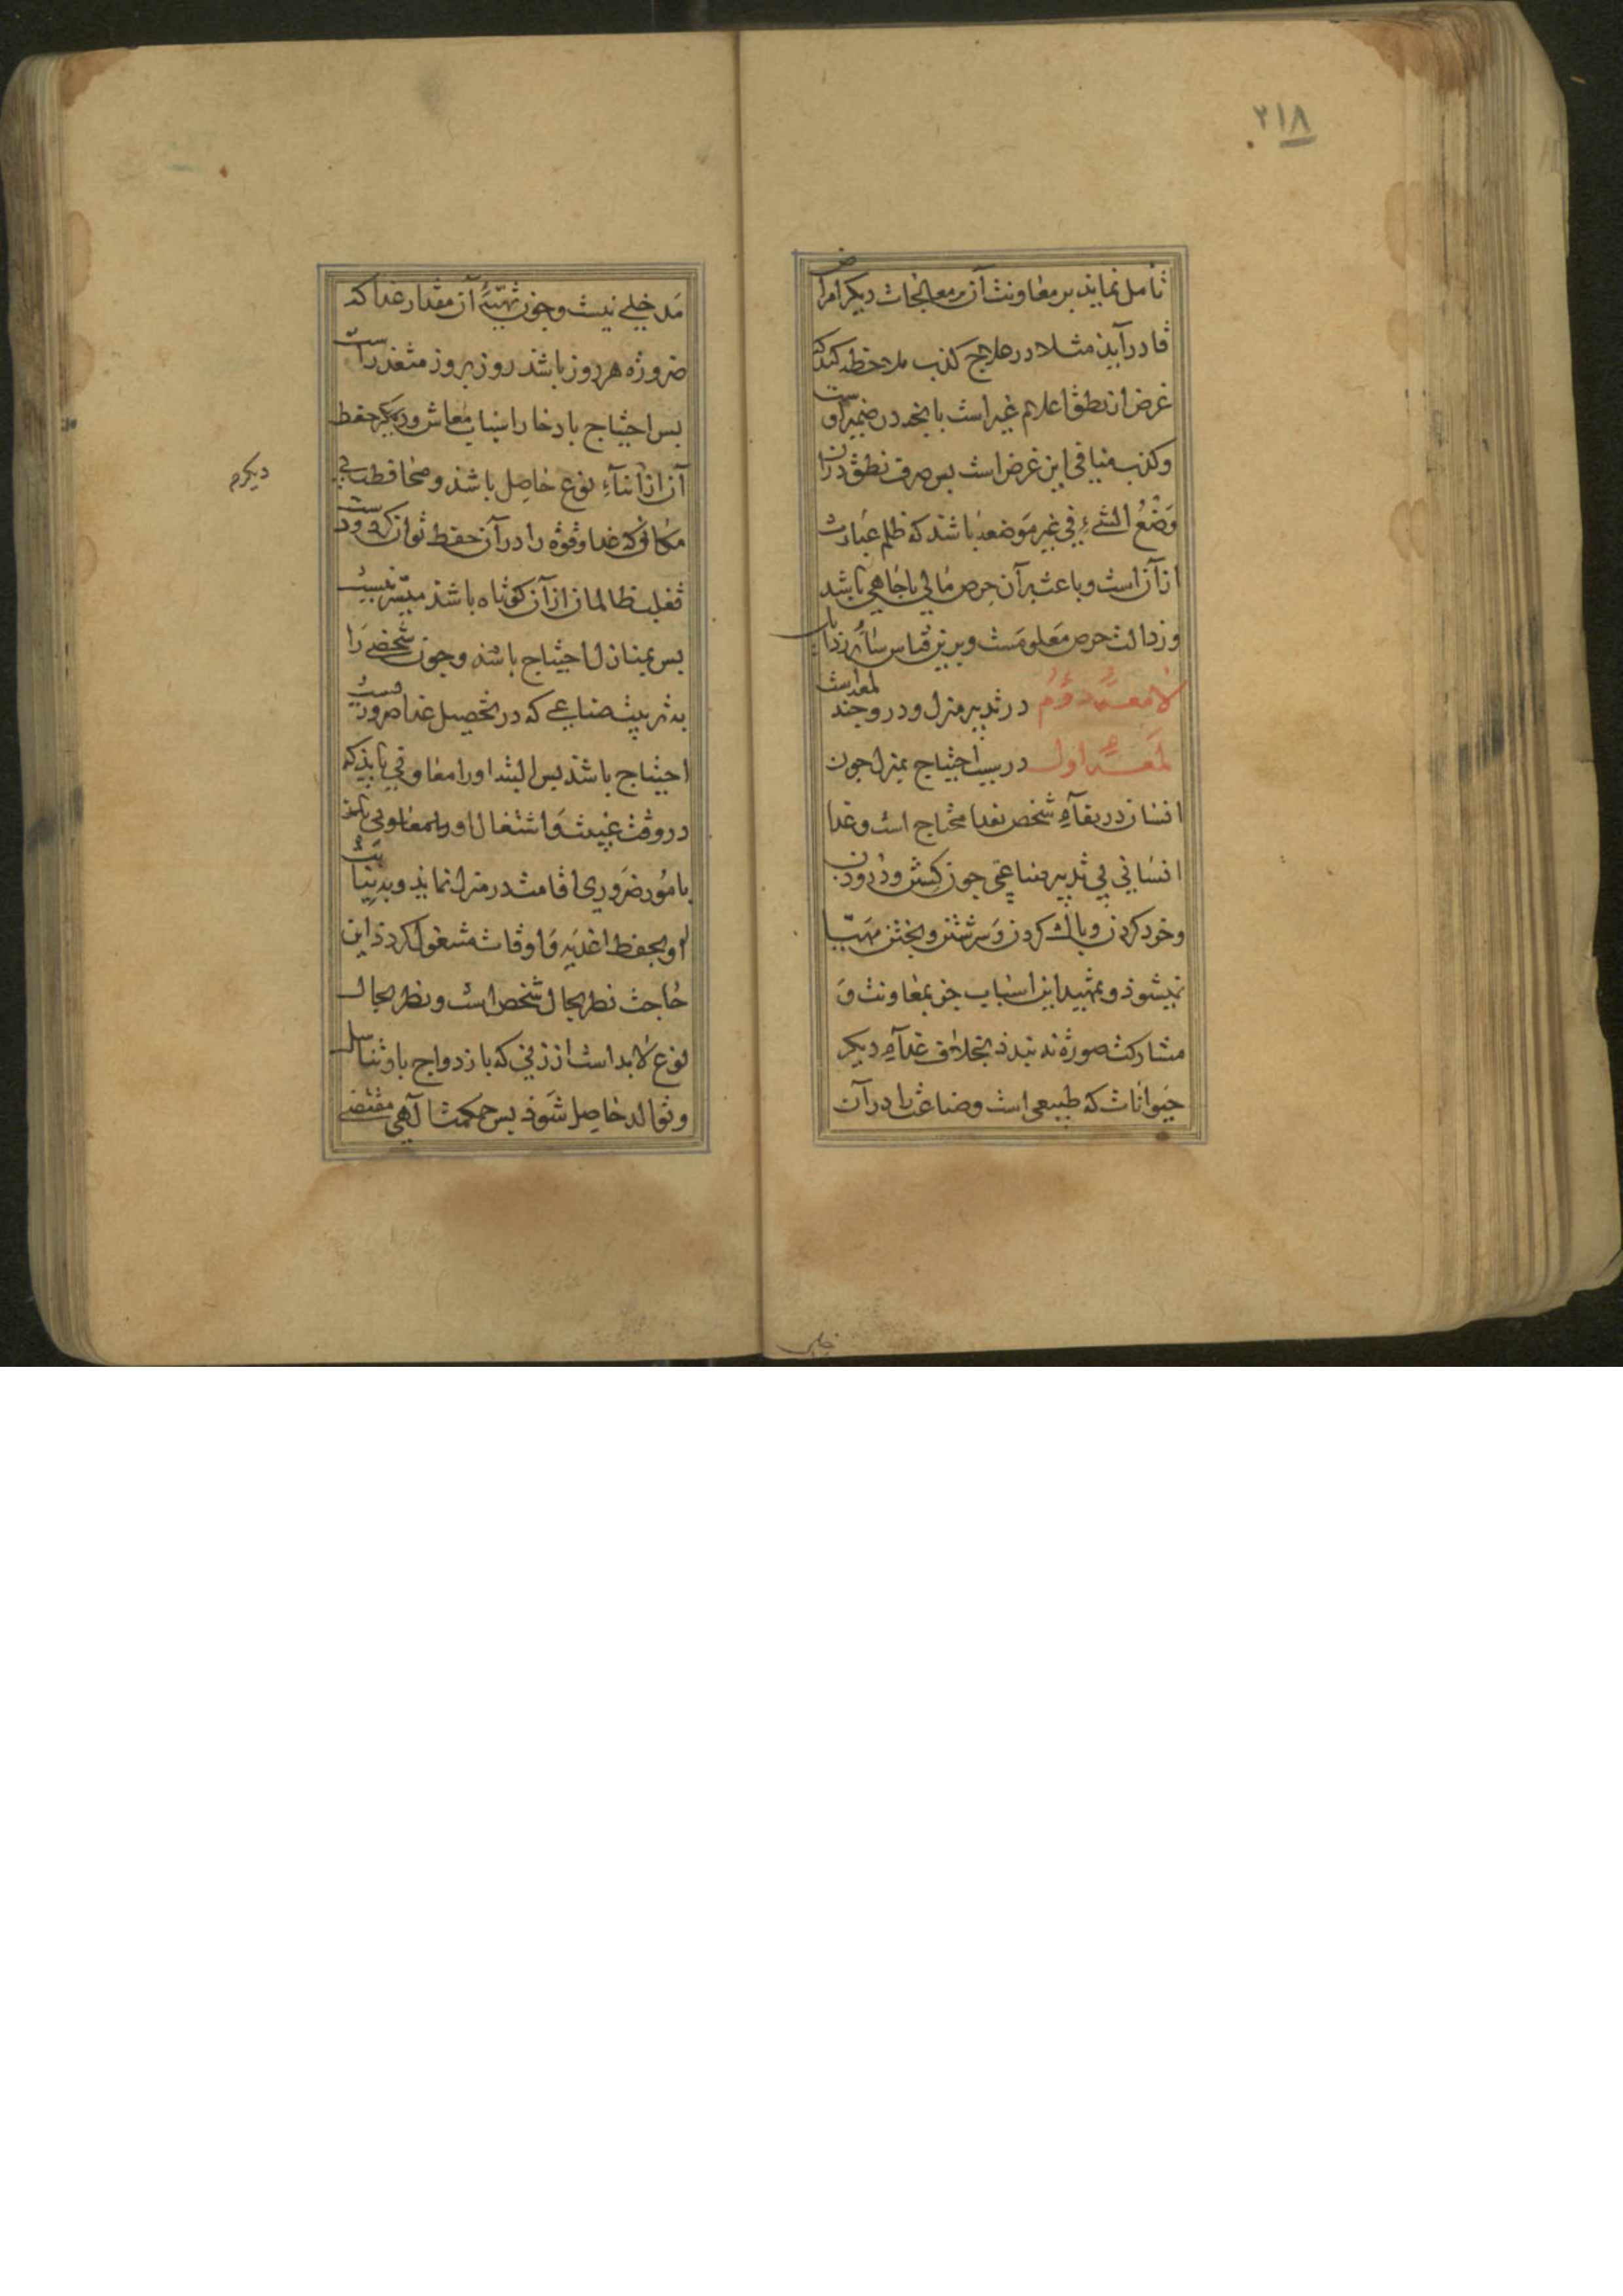 ۲۱۸
تأمل نماید بر معاونت آن بر معالجات دیکر امراض
قادر آید مثلا در علاج کذب ملاحظه کند که
غرض از نطق اعلام غیر است بانچه در ضمیر اوست
و کذب منافی این غرض است بس صرف نطق در آن
وَضْعُ الشیءِ فی غیر مَوضعهِ باشد که ظلم عبارت
از آن است و باعث بر آن حرص مالی یا جاهی باشد
و رذالت حرص معلومست و برین قیاس سائر رذایل
لامعهٔ دوم در تدبیر منزل و درو جند لمعه است
لمعهٔ اول در سبب احتیاج بمنزل جون
انسان در بقآءِ شخص بغذا محتاج است و غذا
انسانی بی تدبیر صناعی جون کشتن و درودن
و خورد کردن و باک کردن و سرشتن و بختن مهیّا
نمیشود و تمهید این اسباب جز بمعاونت و
مشارکت صورة نه بندد بخلاف غذآءِ دیکر
حیوانات که طبیعی است و صناعت را در آن
مدخلی نیست و جون تهیّهٔ آن مقدار غذا که
ضروره هر روز باشد روز بروز متعذر است
بس احتیاج بادخار اسباب معاش و دیکر حفظ
آن از ابنآءِ نوع حاصل باشد و محافظت بی
مکانی که غذا و قوة را در آن حفظ توان کرد و دست
تغلب ظالمان از آن کوتاه باشد میسّر نیست
بس بمنازل احتیاج باشد و جون شخصی را
به ترتیب صناعی که در تحصیل غذا ضروریست
احتیاج باشد بس البته او را معاونی باید که
در وقت غیبت و اشتغال او را معاونی باشد
بامور ضروری اقامت در منزل نماید و به نیابت
او بحفظ اغذیه و اوقات مشغول کردد این
حاجت نظر بحال شخص است و نظر بحال
نوع لابد است از زنی که بازدواج با او تناسل
و توالد حاصل شود بس حکمت آلهی مقتضی
دیکرم